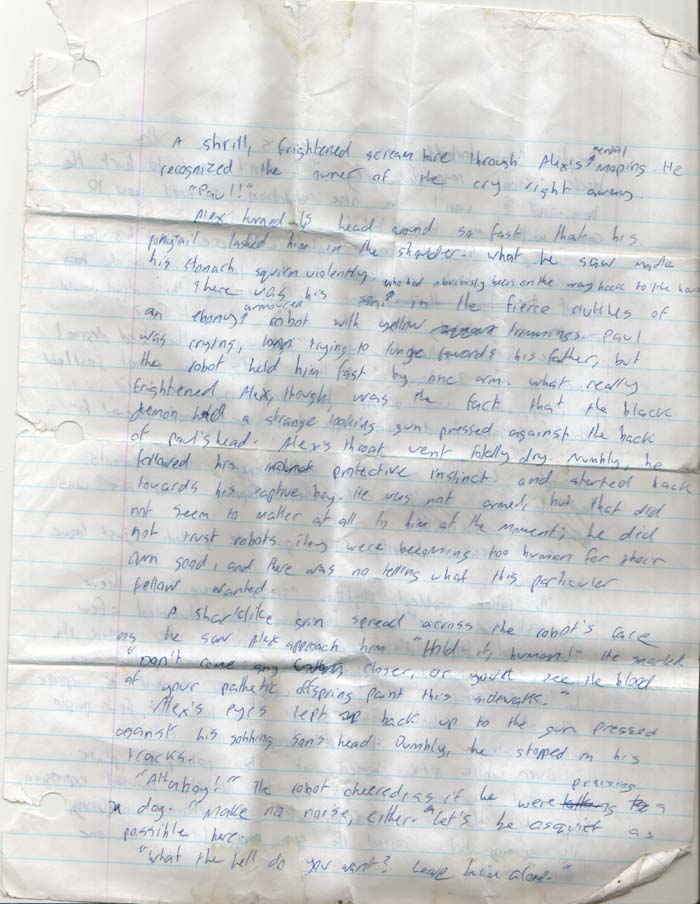 A shrill, frightened scream tore through Alex's mental moping. He
recognized the owner of the cry right away.
"Paul!"
Alex turned his head around so fast that his
ponytail lashed him in the shoulder. What he saw made
his stomach squirm violently.
There was his son, who had obviously been on the way back to the house, in the fierce clutches of
an ebony armoured robot with yellow trimmings. Paul
was crying, trying to lunge towards his father, but
the robot held him fast by one arm. What really
frightened Alex, though, was the fact that the black
demon had a strange looking gun pressed against the back
of Paul's head. Alex's throat went totally dry. Numbly, he
followed his protective instinct and started back
towards his captive boy. He was not armed, but that did
not seem to matter at all to him at the moment; he did
not trust robots. They were becoming too human for their
own good, and there was no telling what this particular
fellow wanted.
A sharklike grin spread across the robot's face
as he saw Alex approach him. "Hold it, human!" He snarled.
"Don't come any closer, or you'll see the blood
of your pathetic offspring paint this sidewalk."
Alex's eyes lept back up to the gun pressed
against his sobbing son's head. Dumbly, he stopped in his
tracks.
"Attaboy!" The robot cheered, as if he were praising
a dog. "Make no noise, either. Let's be as quiet as
possible here.
"What the hell do you want? Leave him alone."